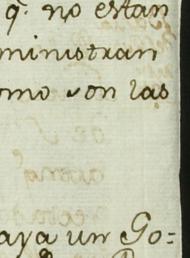 q.e no estan
ministran
omo son las
aya un Go=